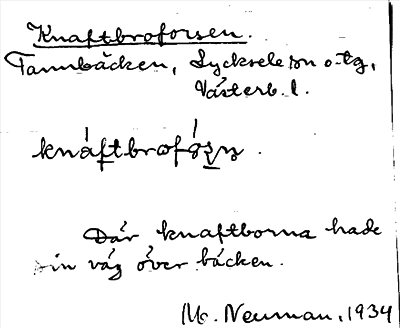 Knaftbroforsen.
Tannbäcken, Lycksele sn o. tg,
Västerb. l.
knáftbrofó̀ʂɳ.
Där knaftborna hade
sin väg över bäcken.
Neuman, 1934